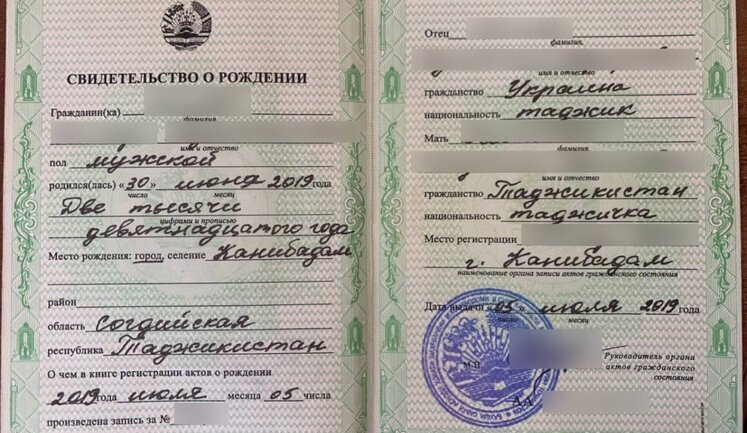 СВИДЕТЕЛЬСТВО О РОЖДЕНИИ
Гражданин(ка)
фамилия
имя и отчество
пол мужской
родился(лась) «30» июня 2019 года
число месяц
Две тысячи
цифрами и прописью
девятнадцатого года
Место рождения: город, селение Канибадам
район
область Согдийская
республика Таджикистан
О чем в книге регистрации актов о рождении
2019 года июля месяца 05 числа
произведена запись за №
Отец
фамилия,
имя и отчество
гражданство Украина
национальность таджик
Мать
имя и отчество
гражданство Таджикистан
национальность таджичка
Место регистрации
г. Канибадам
наименование органа записи актов гражданского состояния
Дата выдачи «05» июля 2019 года
число месяц
М.П.
Руководитель органа
актов гражданского
состояния